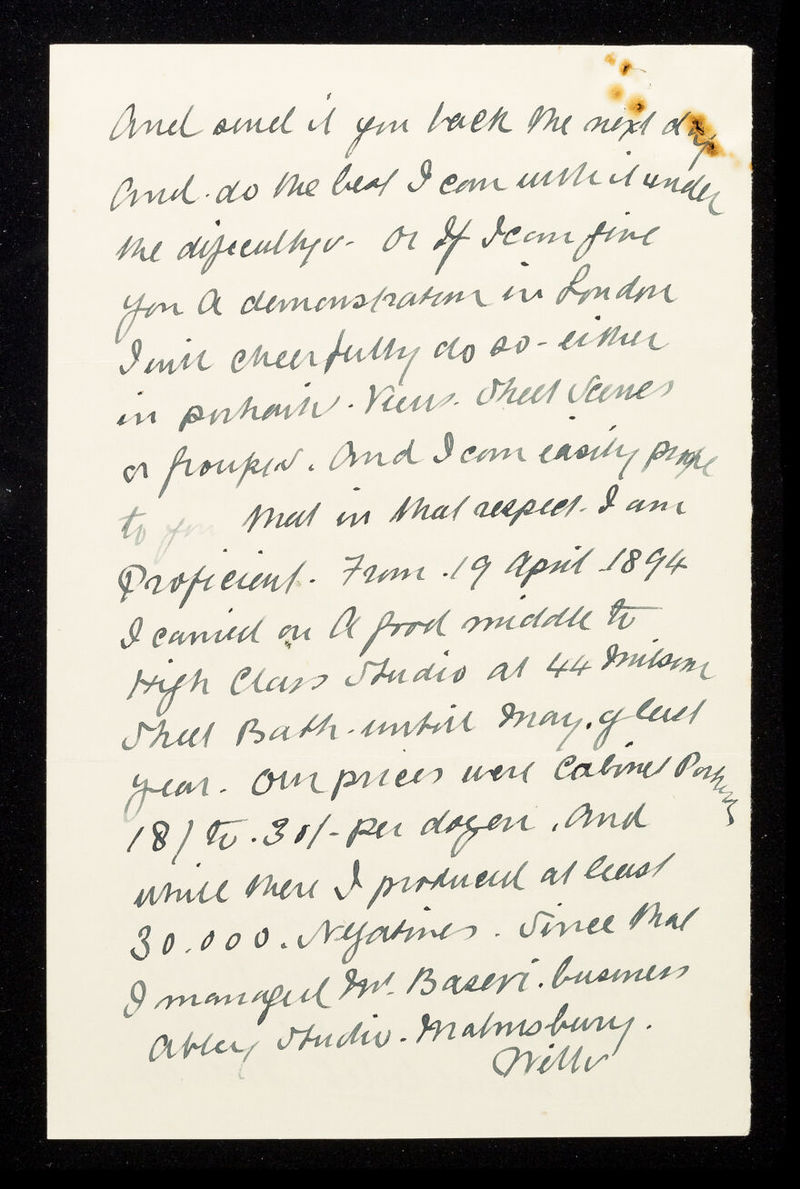 And send it you back the next day
And do the best I can with it under
the dificultys - Or If I can give
you A demonstration in London
I will cheerfully do so - either
in portraits. Views. Street Scenes
or groupes. And I can easily prove
to you that in that respect. I am
Proficient. From 19 April 1894
I carried on A good middle to
High Class Studio at 44 Milsom
Street Bath. untill May. of last
year. Our prices were Cabinet Portraits
18/ to 30/- per dozen. And
while there I produced at least
30.000. Negatives. Since that
I managed Mr. Baseri. business
Abley Studio. Malmsbury.
Wilts